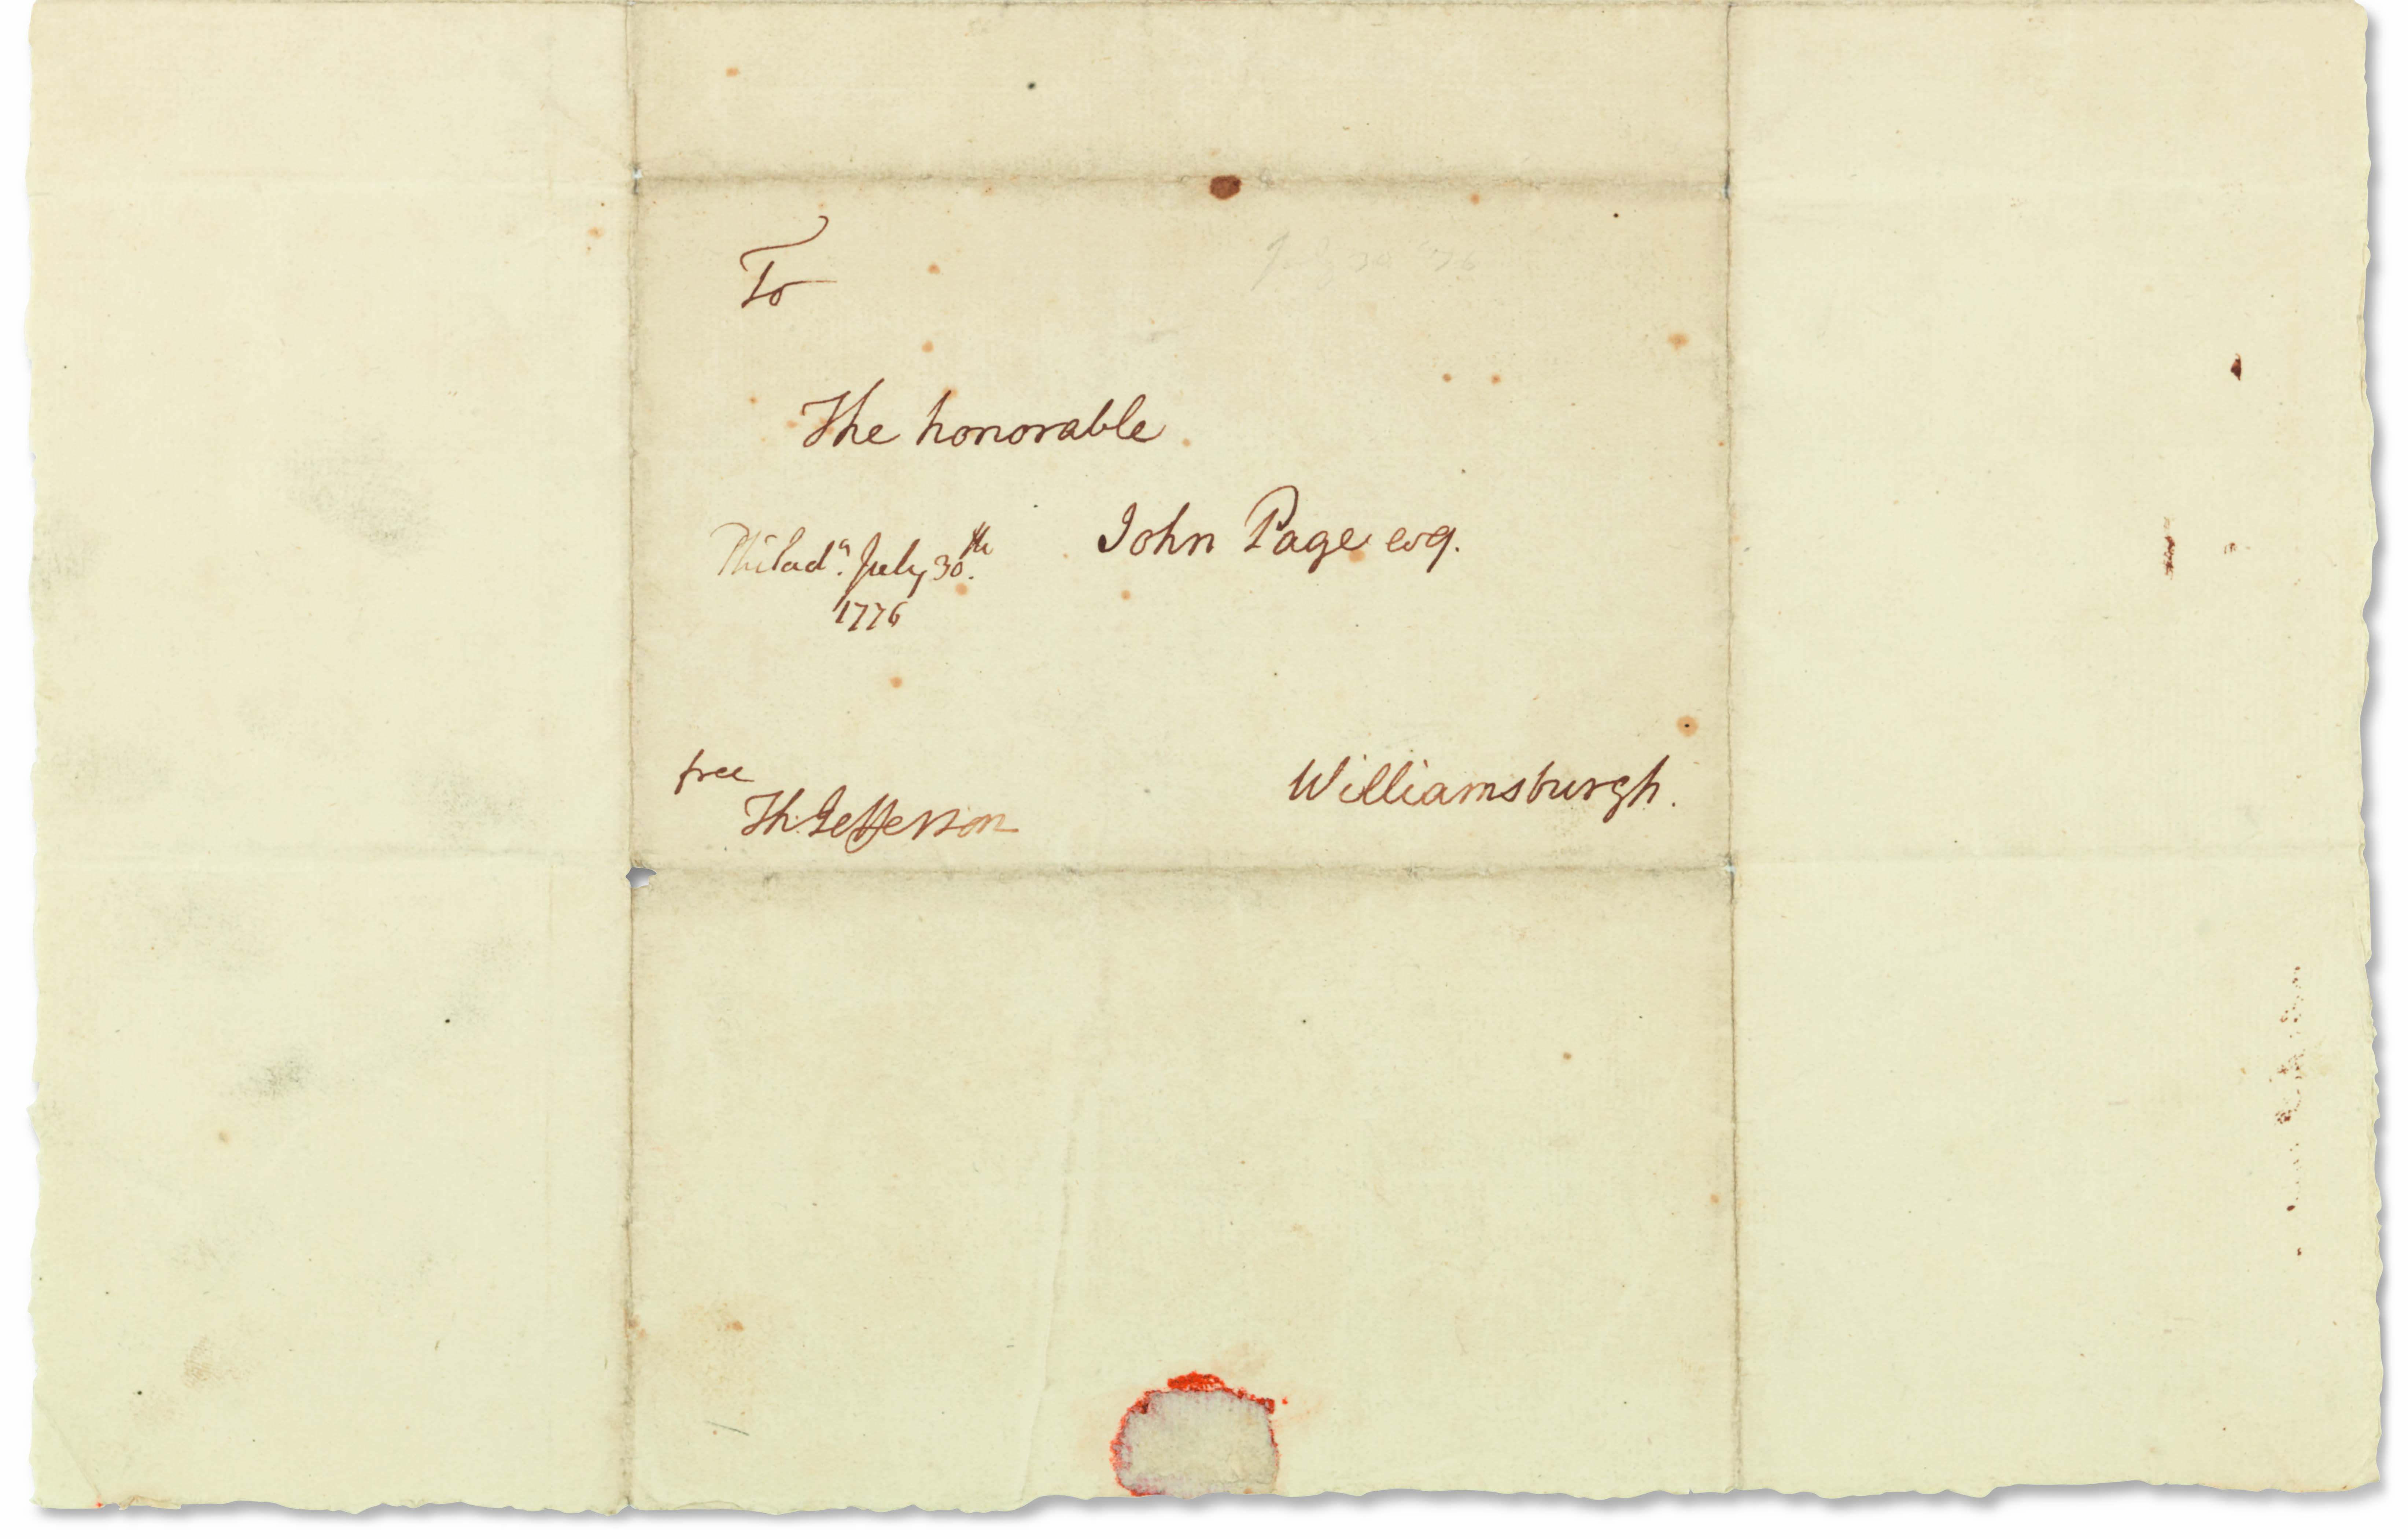 To
July 30 '76
The honorable
John Page esq.
Philad.ª July 30.th
1776
free
Th: Jefferson
Williamsburgh.